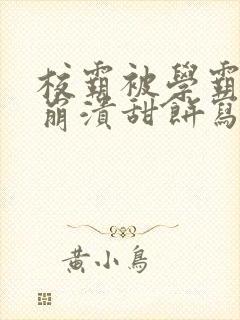 校霸被學霸
崩潰甜餅寫
黃小鳥